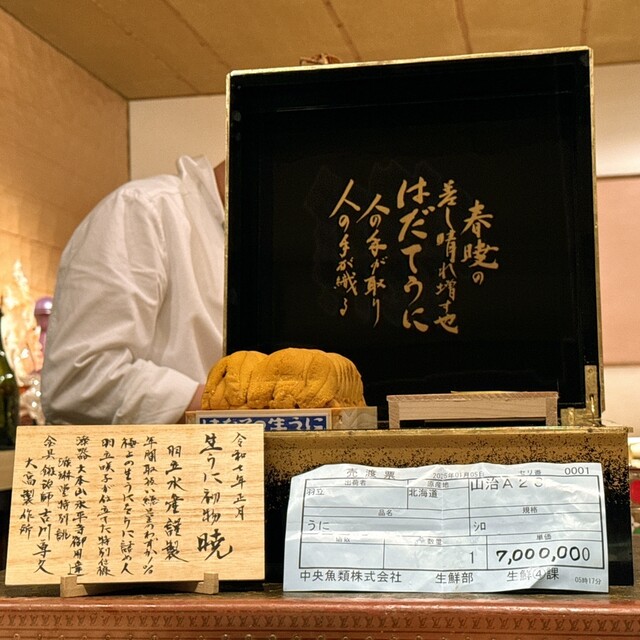 春暁の
差し晴れ増す也
はだてうに
人の手が取り
人の手が織る
はだての生うに
令和七年正月
生うに初物 暁
羽立水産謹製
年間取扱い総量わずか%
極上の生うにをとりに詰め人
羽立咲子が仕立てた特別仕様
漆器 大本山永平寺御用達
漆琳堂特別誂
金具 錺鋲師 吉川専久
大高製作所
売渡票 2025年01月05日 セリ番 0001
出荷者 原産地
羽立 北海道 山治A23
品名 規格
うに シロ
個数 数量 単価
1 7,000,000
中央魚類株式会社 生鮮部 生鮮④課 05時17分